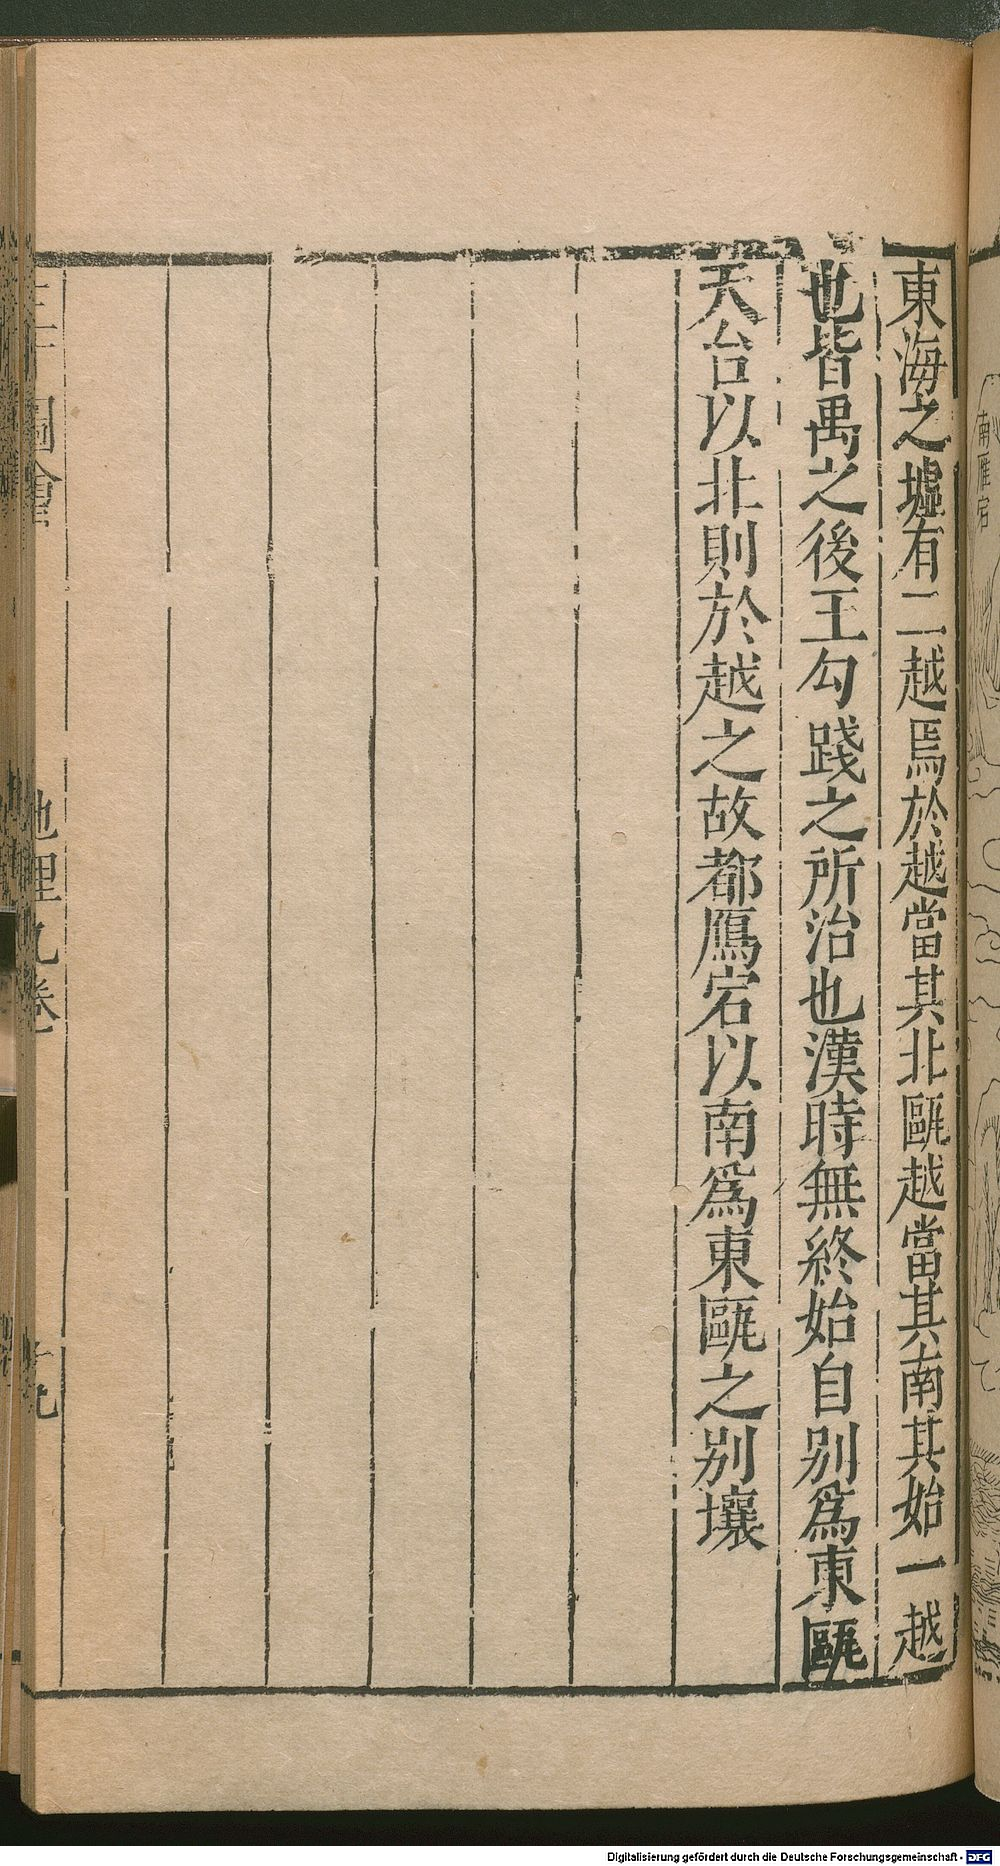 東海之墟有二越焉於越當其北甌越當其南其始一越
也皆禺之後王勾踐之所治也漢時無終始自别爲東甌
天台以北則於越之故都鴈宕以南爲東甌之别壤
地理九卷
南雁宕
Digitalisierung gefördert durch die Deutsche Forschungsgemeinschaft - DFG